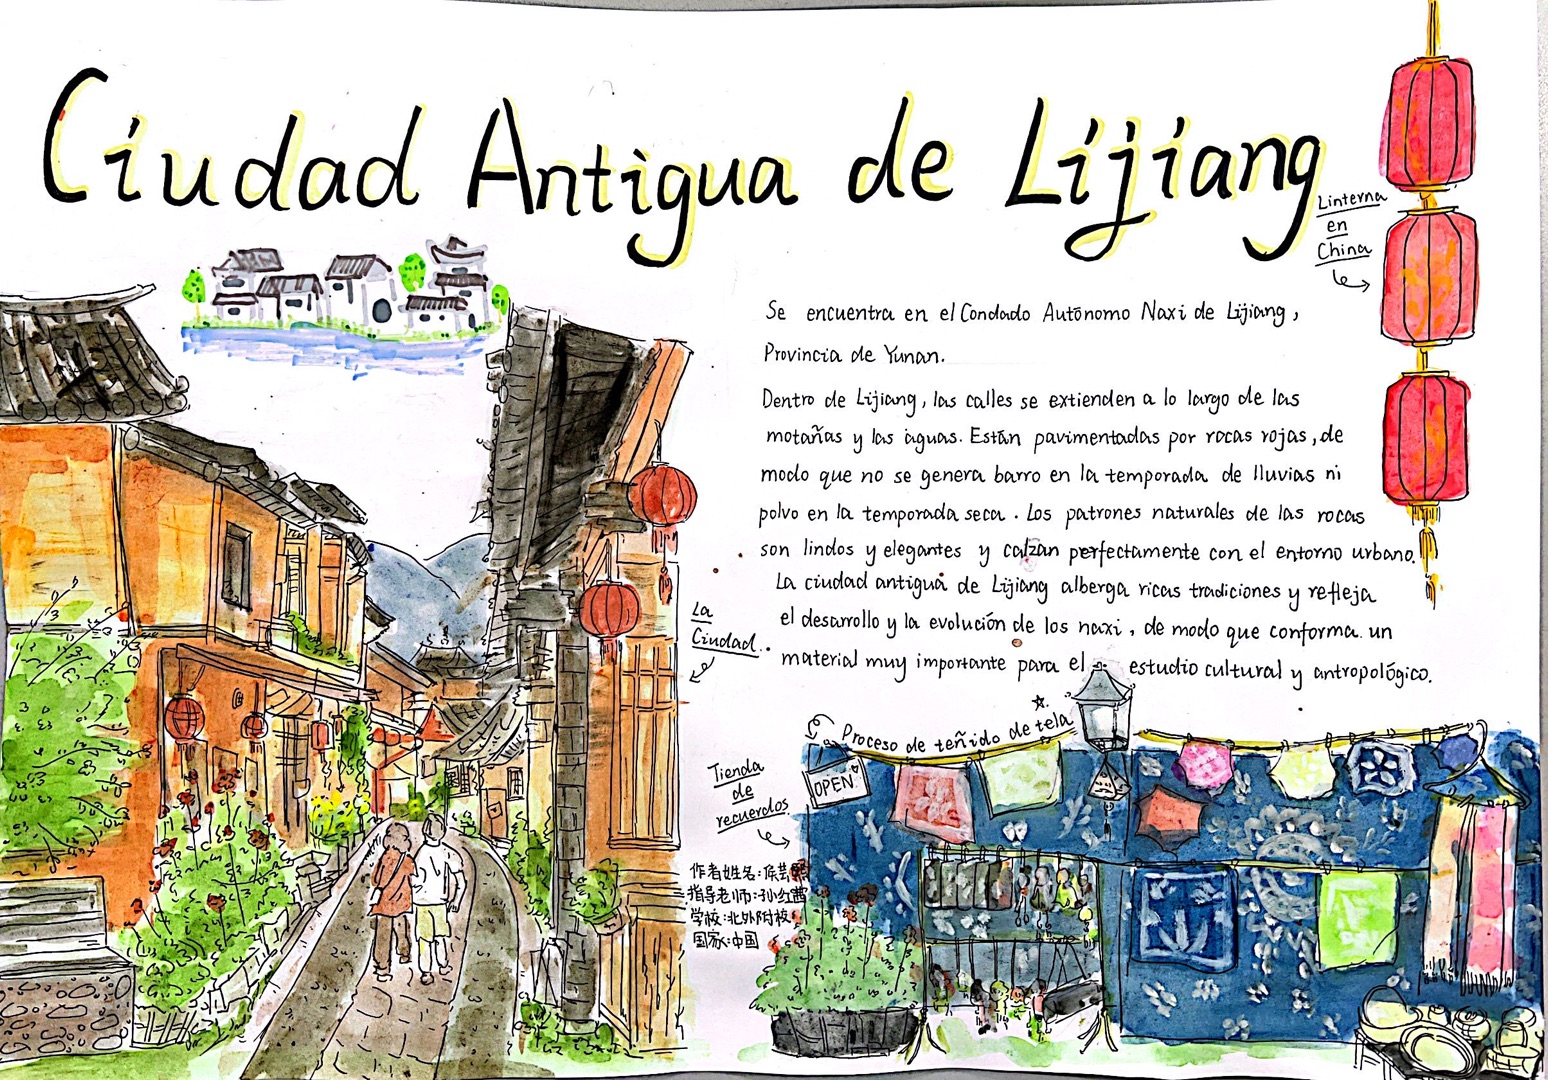 Ciudad Antigua de Lijiang
Linterna
en
China
Se encuentra en el Condado Autónomo Naxi de Lijiang,
Provincia de Yunan.
Dentro de Lijiang, las calles se extienden a lo largo de las
motañas y las águas. Están pavimentadas por rocas rojas, de
modo que no se genera barro en la temporada de lluvias ni
polvo en la temporada seca. Los patrones naturales de las rocas
son lindos y elegantes y calzan perfectamente con el entorno urbano.
La ciudad antigua de Lijiang alberga ricas tradiciones y refleja
el desarrollo y la evolución de los naxi, de modo que conforma un
material muy importante para el estudio cultural y antropológico.
La
Ciudad.
Proceso de teñido de tela
OPEN
Tienda
de
recuerdos
作者姓名:侯芸
指导老师:孙红茜
学校:北外附校
国家:中国